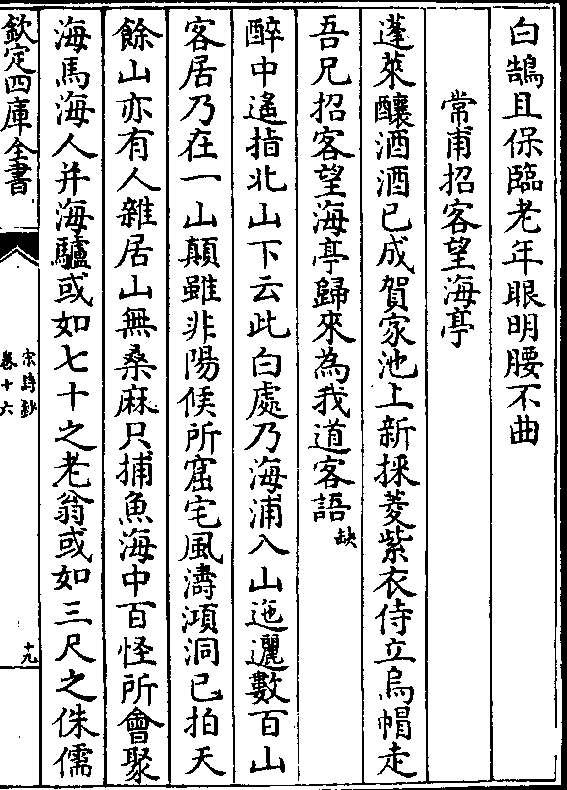 白鵠且保臨老年眼明腰不曲
常甫招客望海亭
蓬萊釀酒酒已成賀家池上新採菱紫衣侍立烏帽走
吾兄招客望海亭歸來為我道客語缺
醉中遙指北山下云此白處乃海浦入山迤邐數百山
客居乃在一山顛雖非陽侯所窟宅風濤澒洞已拍天
餘山亦有人雜居山無桑麻只捕魚海中百怪所會聚
海馬海人并海驢或如七十之老翁或如三尺之侏儒
欽定四庫全書
宋詩鈔
卷十六
十九